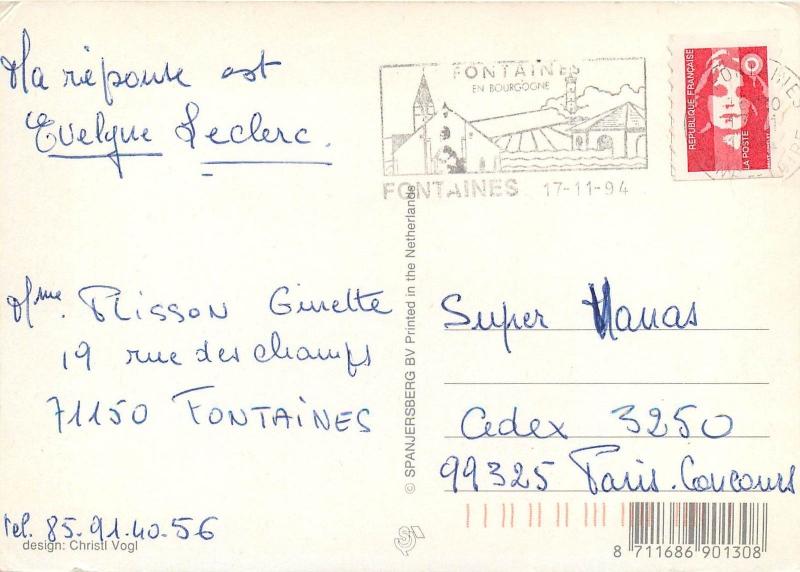 Ma réponse est
Evelyne Leclerc.
Mme. PLISSON Ginette
19 rue des champs
71150 FONTAINES
Tel. 85.91.40.56
design: Christl Vogl
© SPANJERSBERG BV Printed in the Netherlands
FONTAINES
EN BOURGOGNE
FONTAINES 17-11-94
REPUBLIQUE FRANÇAISE
LA POSTE
Super Nanas
Cedex 3250
99325 Paris.Concours
8 711686 901308